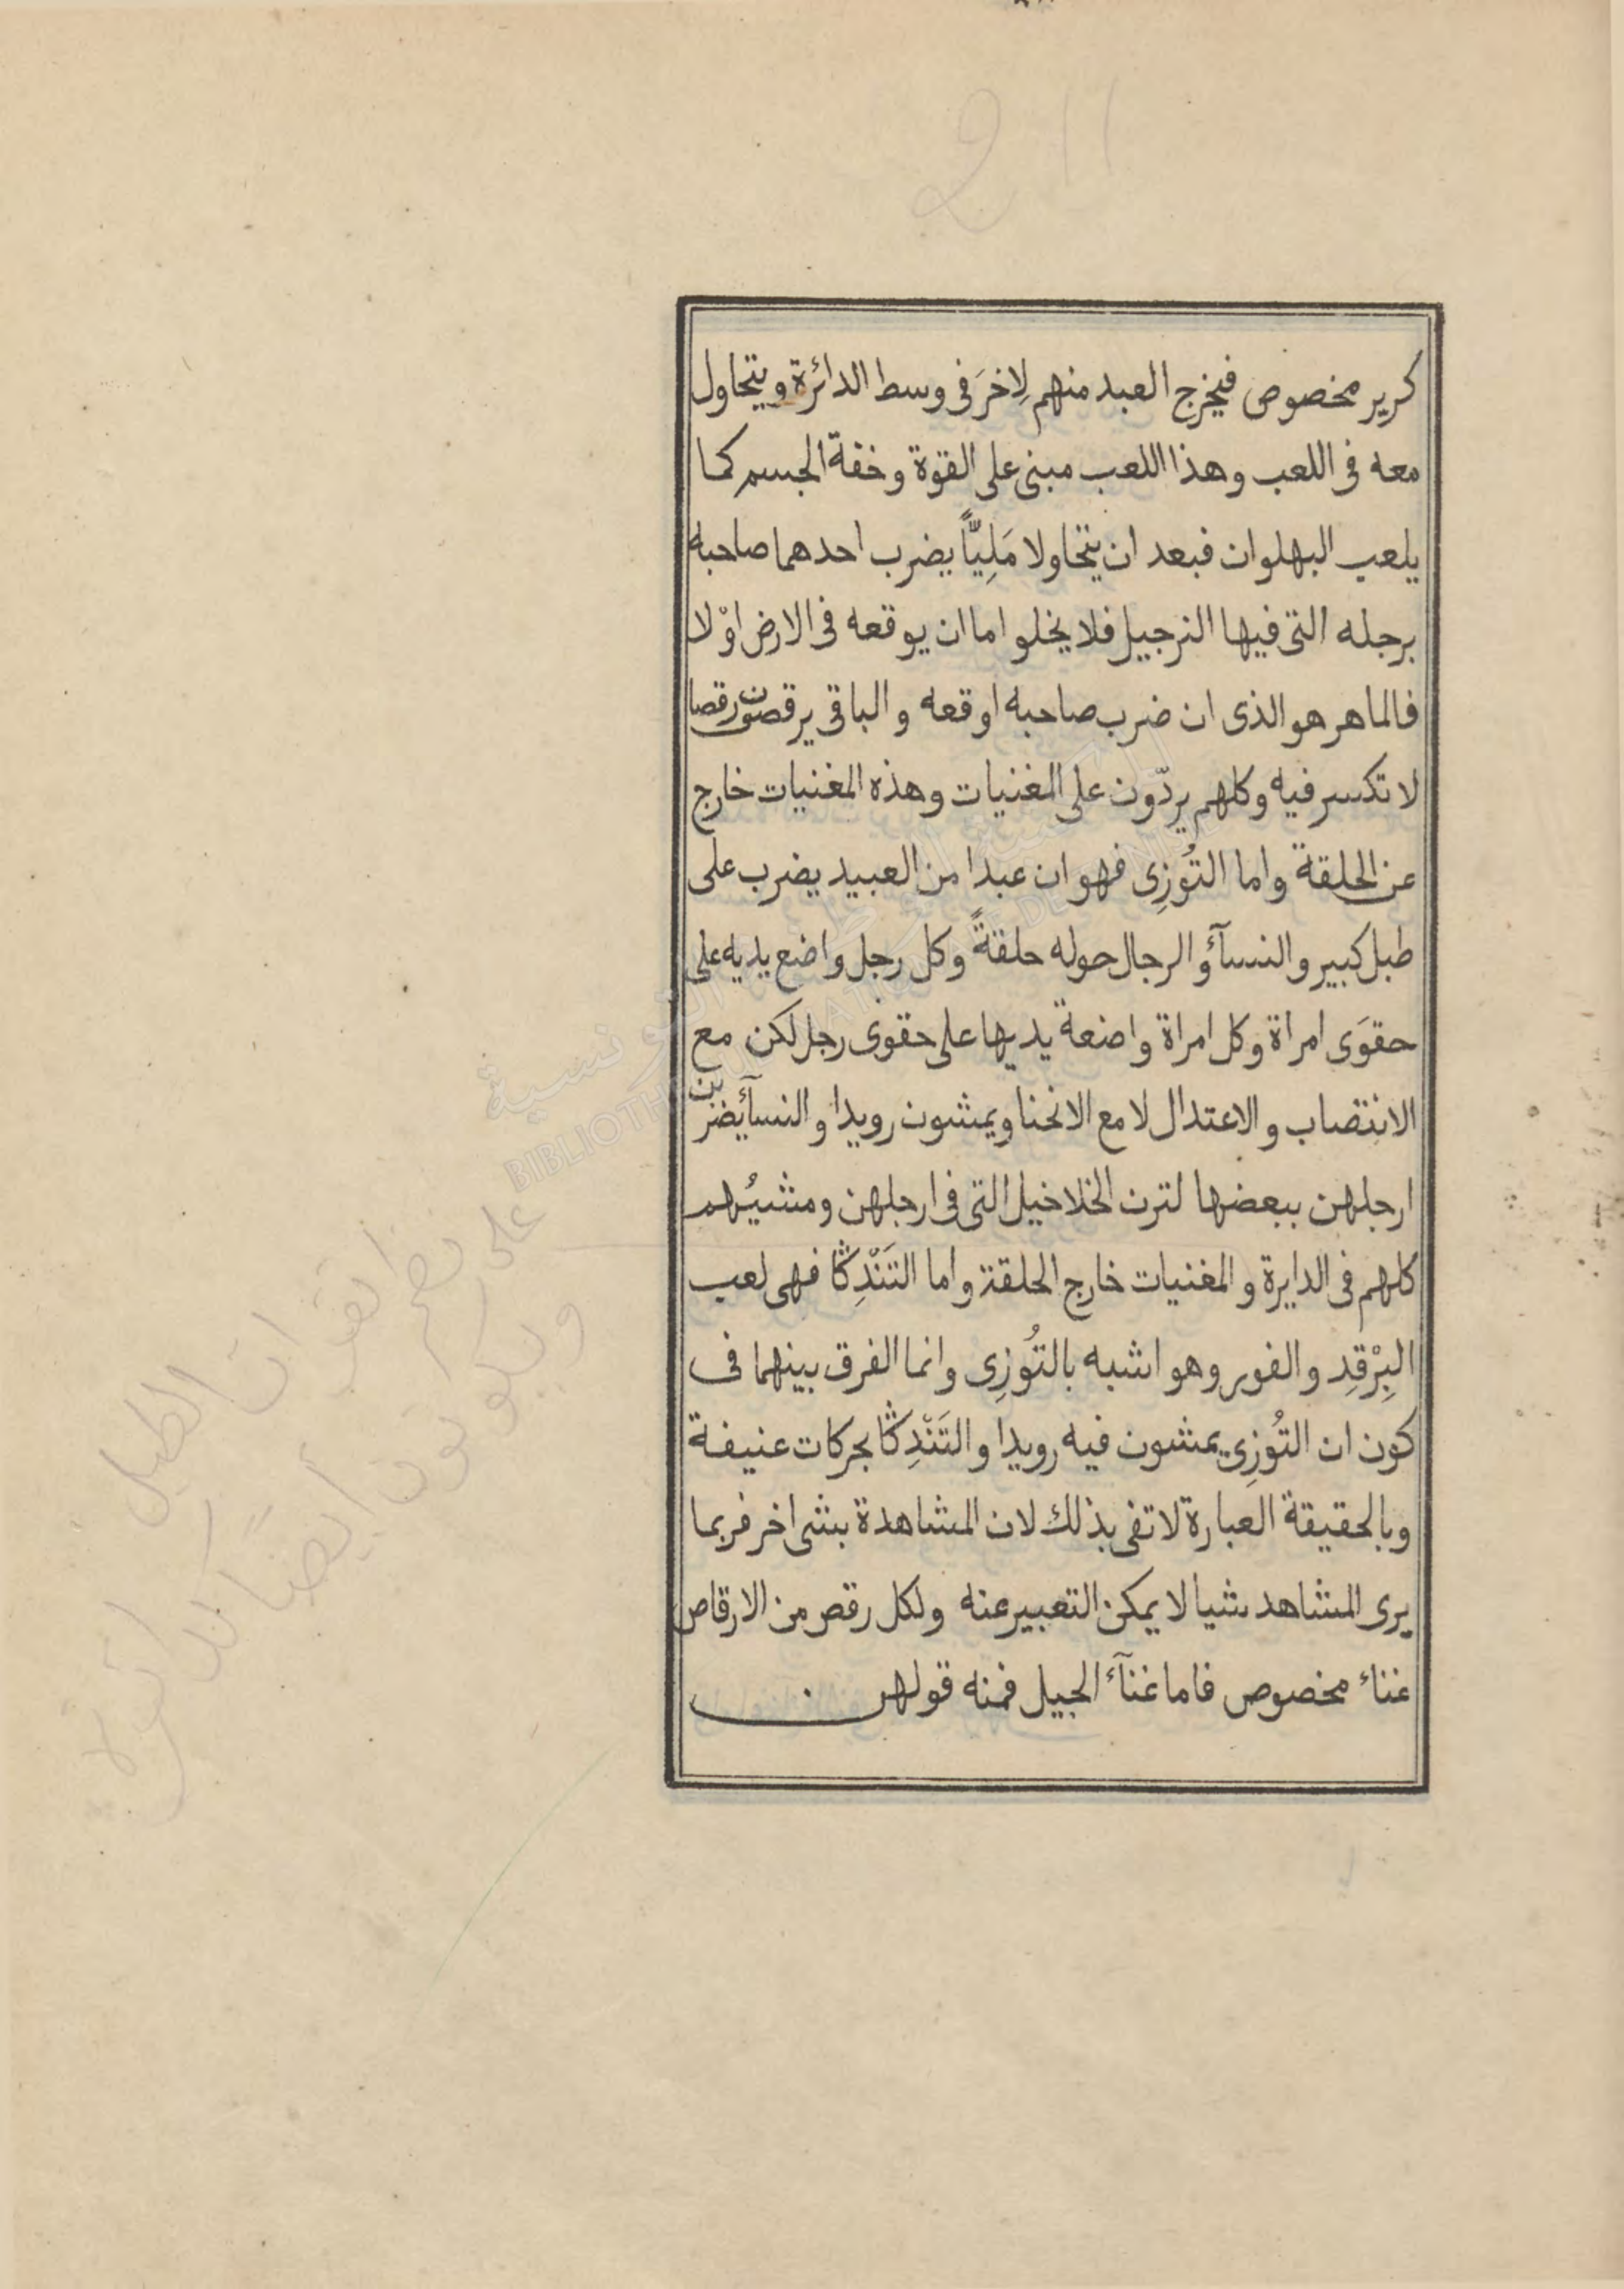 211
كرير مخصوص فيخرج العبد منهم لِاخرَ فى وسط الدائرة ويتحاول
معه فى اللعب وهذا اللعب مبنى على القوة وخفة الجسم كما
يلعب البهلوان فبعد ان يتحاولا مَلِيًّا يضرب احدهما صاحبه
برجله التى فيها النرجيل فلا يخلو اما ان يوقعه فى الارض اوْ لا
فالماهر هو الذى ان ضرب صاحبه اوقعه والباقى يرقصون رقصا
لا تكسر فيه وكلهم يردّون على المغنيات وهذه المغنيات خارج
عن الحلقة واما التُوزِى فهو ان عبدا من العبيد يضرب على
طبل كبير والنسآءُ والرجال حوله حلقةً وكل رجل واضع يديه على
حقوَى امراة وكل امراة واضعة يديها على حقوى رجل لكن مع
الانتصاب والاعتدال لا مع الانحنا ويمشون رويدا والنسآء يضربن
ارجلهن ببعضها لترن الخلاخيل التى فى ارجلهن ومشيُهم
كلهم فى الدايرة والمغنيات خارج الحلقة واما التَنْدِڭَا فهى لعب
البِرْقِد والفور وهو اشبه بالتُوزِى وانما الفرق بينهما فى
كون ان التُوزِى يمشون فيه رويدا والتَنْدِڭَا بحركات عنيفة
وبالحقيقة العبارة لا تفى بذلك لان المشاهدة بشى اخر فربما
يرى المشاهد شيا لا يمكن التعبير عنه ولكل رقص من الارقاص
غناء مخصوص فاما غنآء الجيل فمنه قولهن
على نقرات الطبل
ويكونون أيضًا كدائرة
التونسية
BIBLIOTH